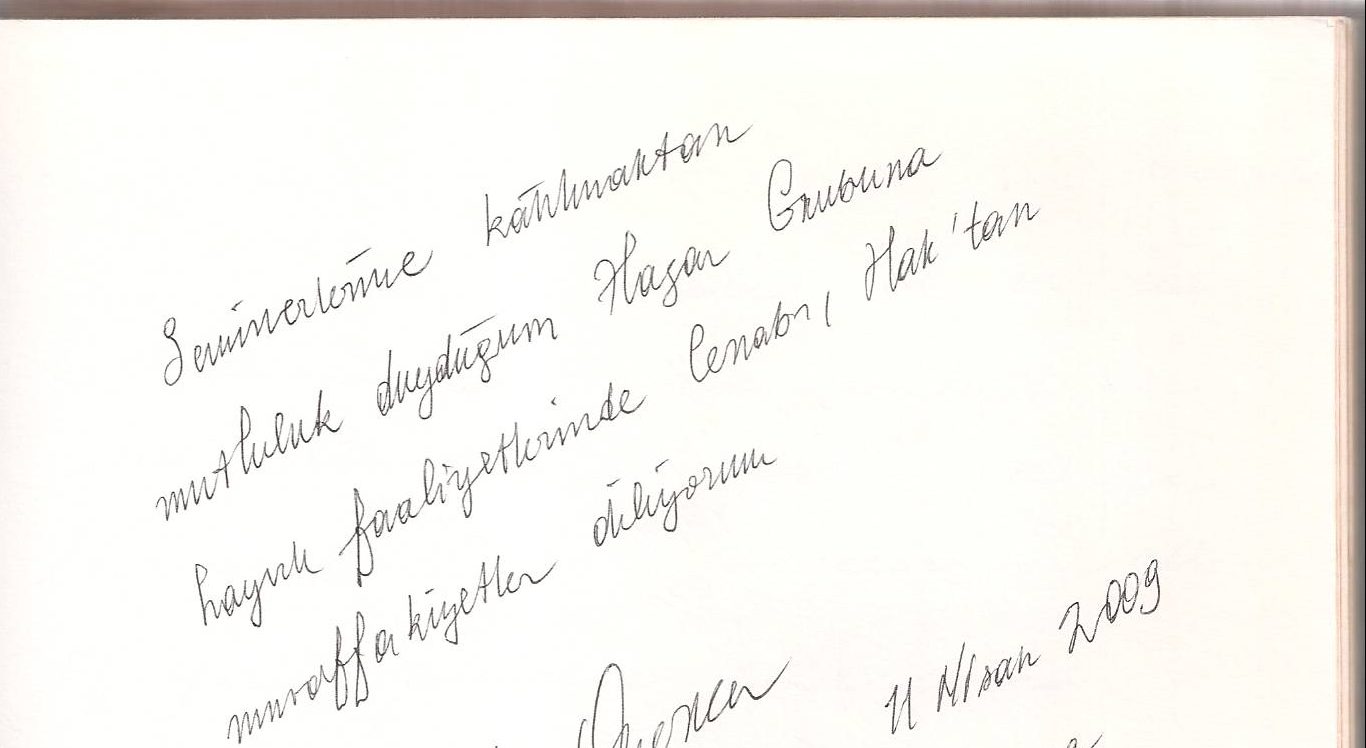 Seminerlerine katılmaktan
mutluluk duyduğum Hazar Grubuna
hayırlı faaliyetlerinde Cenabı, Hak'tan
muvaffakiyetler diliyorum
11 Nisan 2009